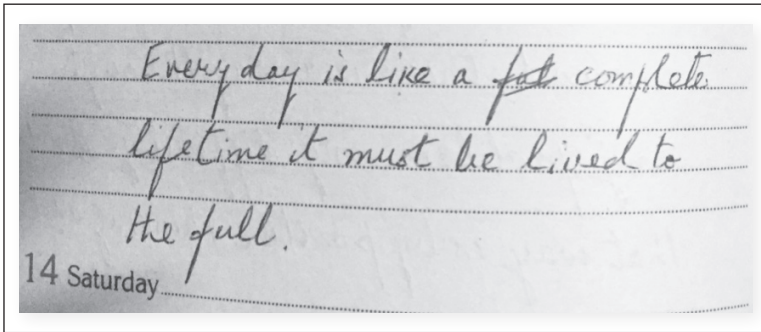 Every day is like a complete
lifetime it must be lived to
the full.
14 Saturday